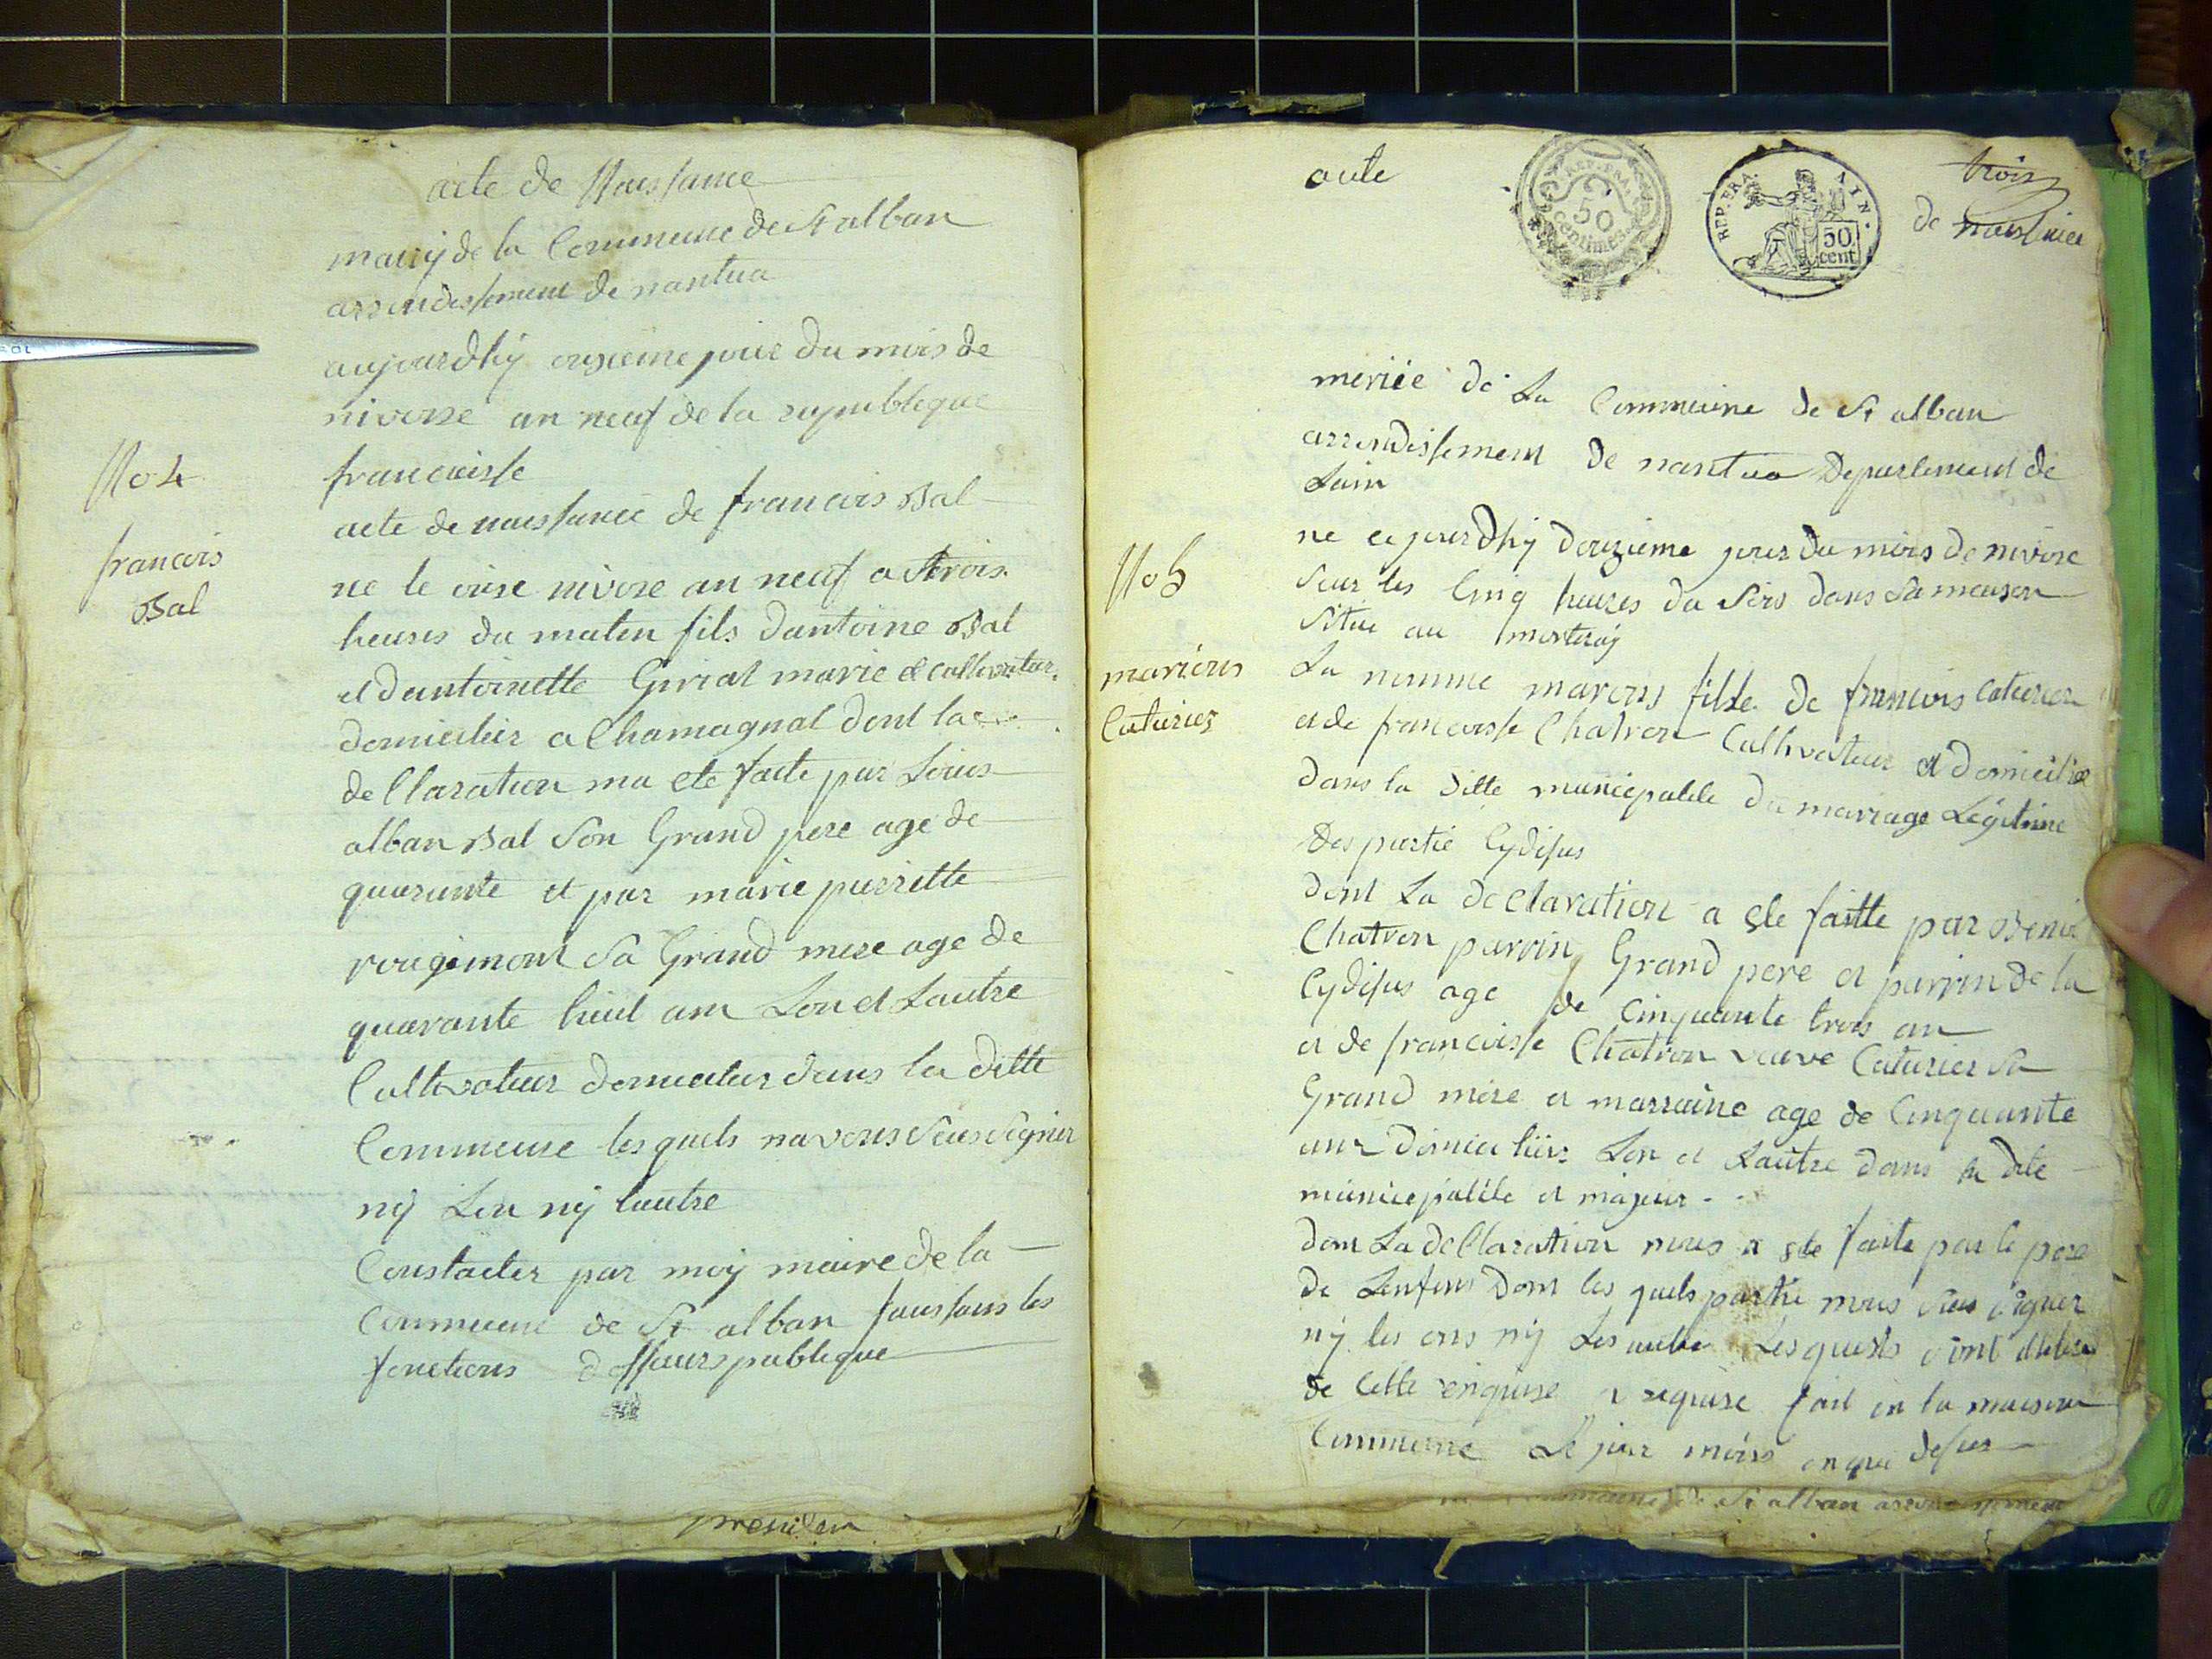 acte de Naissance
mairij de la Commeune de St alban
arrondissement de nantua
aujourdhij onzieme jour du mois de
nivosse an neuf de la republique
francaisse
No 4
francois
Bal
acte de naissance de francois Bal
ne le onse nivose an neuf a trois
heures du maten fils dantoine Bal
et dantoinette Girial marie & cultivateur
domicilier a Chamagnat dont la
declaration ma ete faite par Louis
alban Bal son Grand pere age de
quarante et par marie pierrette
rougimont sa Grand mere age de
quarante huit ans Lon et Lautre
Cultivateur domicilier dans la ditte
Commeune les quels navons seus signier
nij Lon nij lautre
Constatter par moij maire de la
Commeune de St alban faissans les
fonctions publique
acte
REP. FRA.
50
centimes
REP. FRA.
AIN.
50
cent.
trois
de naissance
meriée de La Commeune de St alban
arrondissement de nantua Departement de
Lain
No 5
marions
Caturier
ne cejourdhij douzieme jour du mois de nivose
seur les Cinq heures du soir dans sa maison
Situe au montreaj
La nomme marions fille de francois Caturier
et de francoisse Chatron Cultivateur et domicilie
dans la ditte municipalite du mariage Legitime
Des partie Cydesus
dont La declaration a ete faitte par Benoi
Chatron parrin Grand pere et parrin de la
Cydesus age de Cinquante trois an
et de francoisse Chatron veuve Caturier sa
Grand mere et marraine age de Cinquante
ans domicilier Lon et Lautre dans la dite
municipalite et majeur
dont La declaration nous a ete faite par le pere
de Lenfens Dont les quels partie nous seus signer
nij les ons nij Les autre Lesquels sont
de Cette enquise requise fait en la maison
Commeune Le jour mois an que desus
de St alban